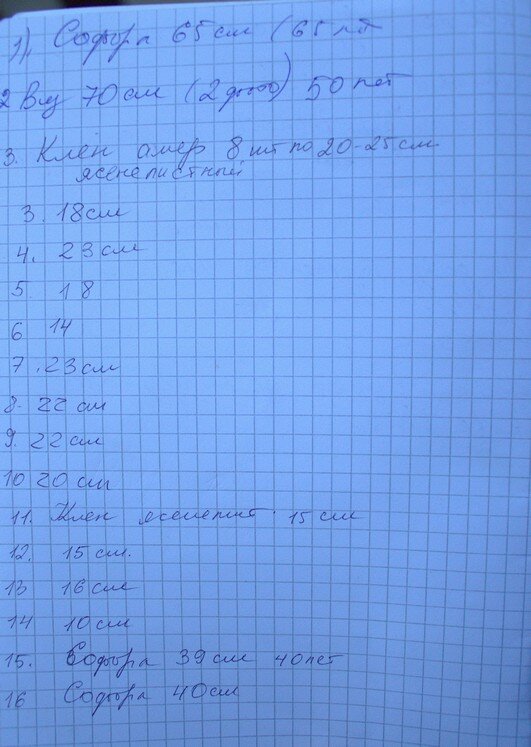 1). Софора 65 см (65 лет
2 Вяз 70 см (2 дупло) 50 лет
3. Клён амер 8 шт по 20-25 см
ясенелистный
3. 18 см
4. 23 см
5 18
6 14
7. 23 см
8. 22 см
9. 22 см
10 20 см
11. Клен ясенелист. 15 см
12. 15 см.
13 16 см
14 10 см
15. Софора 39 см 40 лет
16 Софора 40 см